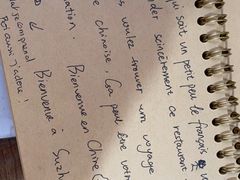 qui sait un petit peu le français
der sincèrement ce restaurant
s voulez trouver un voyage
e chinoise. Ça peut être votre
ation. Bienvenue en Chine
& Bienvenue à Suzh
comprend
moi aussi j'adore!